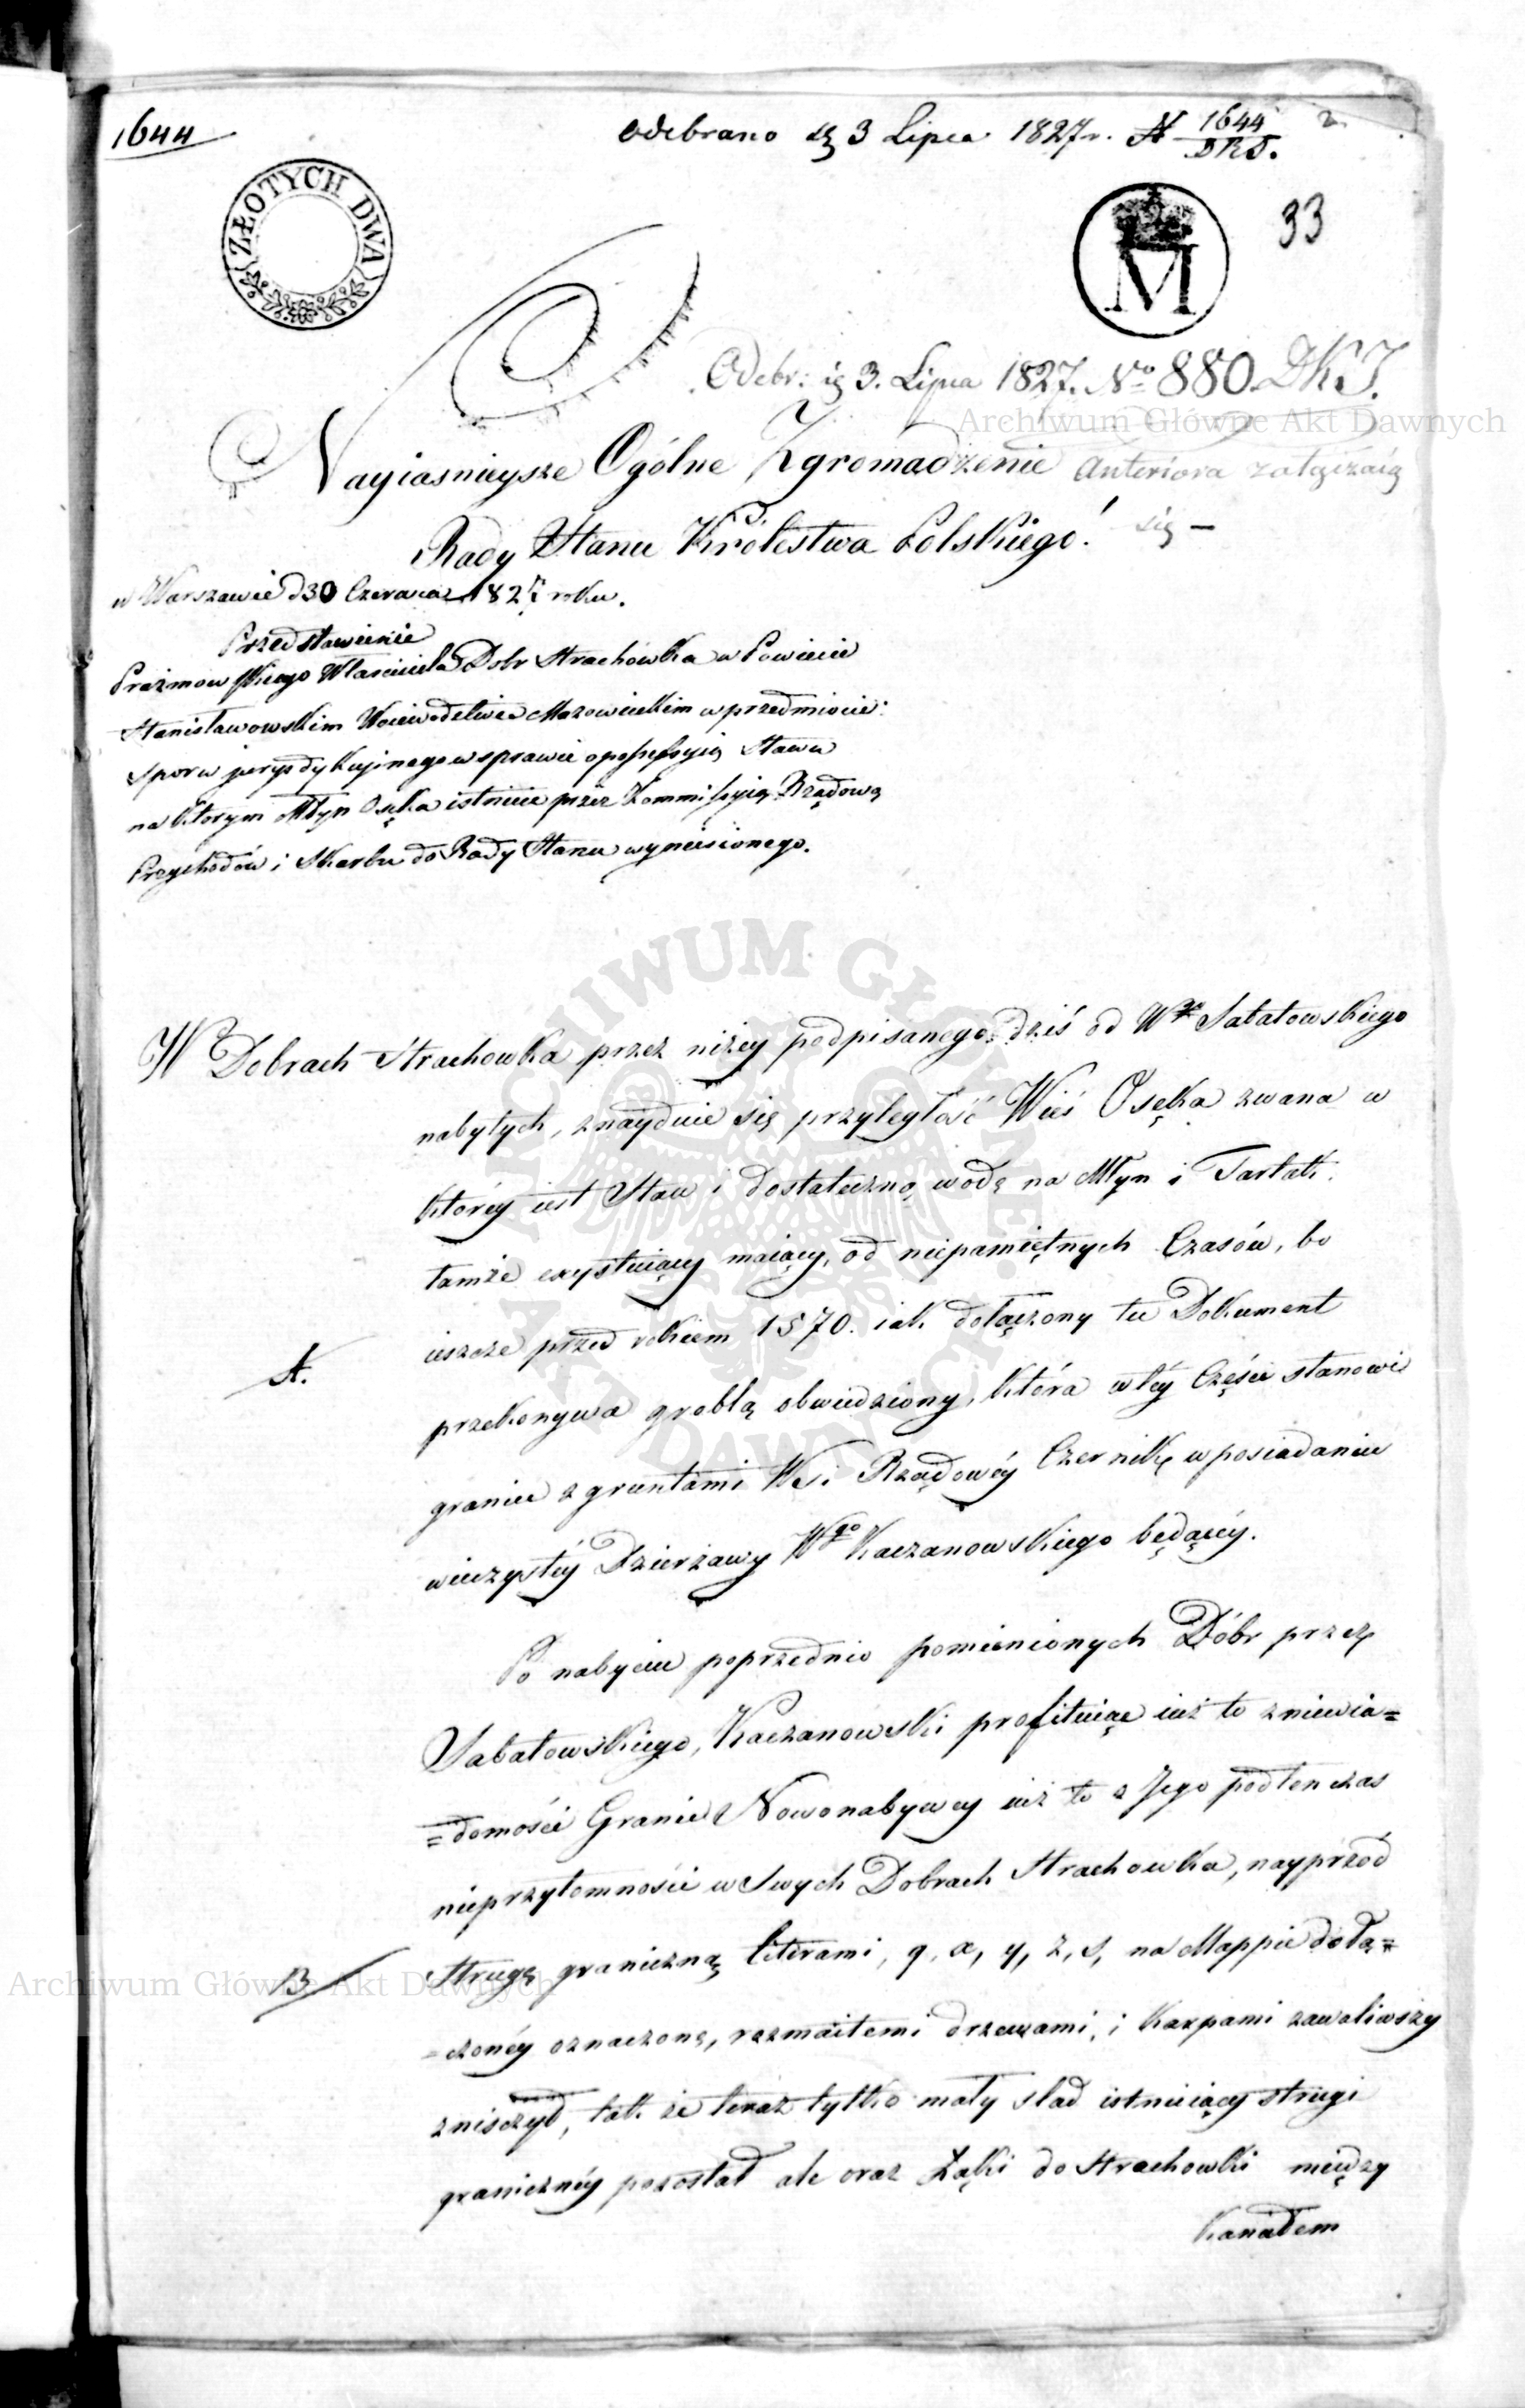 1644
Odebrano dg 3 Lipca 1827 r. N 1644 2
DRS.
ZŁOTYCH DWA
M
33
Odebr: ig 3. Lipca 1827. No 880 DKJ.
Archiwum Główne Akt Dawnych
Nayiasnieysze Ogólne Zgromadzenie Anteriora załączaią
Rady Stanu Królestwa Polskiego! się –
w Warszawie d 30 Czerwca 1827 roku.
Przedstawienie
Prażmowskiego Własciciela Dobr Strachówka w Powiecie
Stanisławowskim Woiewodztwie Mazowieckim w przedmiocie
sporu juryzdykcyjnego w sprawie o possessyią Stawu
na ktorym Młyn Osęka istnieie przez Kommissyią Rządową
Przychodów i Skarbu do Rady Stanu wyniesionego.
W Dobrach Strachowka przez niżey podpisanego dziś od Wgo Sabatowskiego
nabytych, znayduie się przyległość Wieś Osęka zwana w
którey iest Staw i dostateczną wodę na Młyn i Tartak
tamże exystuiący maiący, od niepamiętnych Czasów, bo
ieszcze przed rokiem 1570. iak dołączony tu Dokument
A.
przekonywa groblą obwiedziony, która w téy Części stanowi
granice z gruntami Wsi Rządowéy Czernik w posiadaniu
wieczystéy Dzierżawy Wgo Kaczanowskiego będącéy.
Po nabyciu poprzednio pomienionych Dóbr przez
Sabatowskiego, Kaczanowski profituiąc iuż to z niewia=
=domości Granic Nowonabywcy iuż to z Jego podtenczas
nieprzytomności w Swych Dobrach Strachowka, nayprzód
Strugę graniczną literami, q, x, y, z, s, na Mappie dołą=
Archiwum Główne Akt Dawnych
B
=czonéy oznaczoną, rozmaitemi drzewami, i Karpami zawaliwszy
zniszczył, tak że teraz tylko mały slad istnieiącey strugi
granicznéy pozostał ale oraz Łąki do Strachowki między
Kanałem
ARCHIWUM GŁÓWNE AKT DAWNYCH